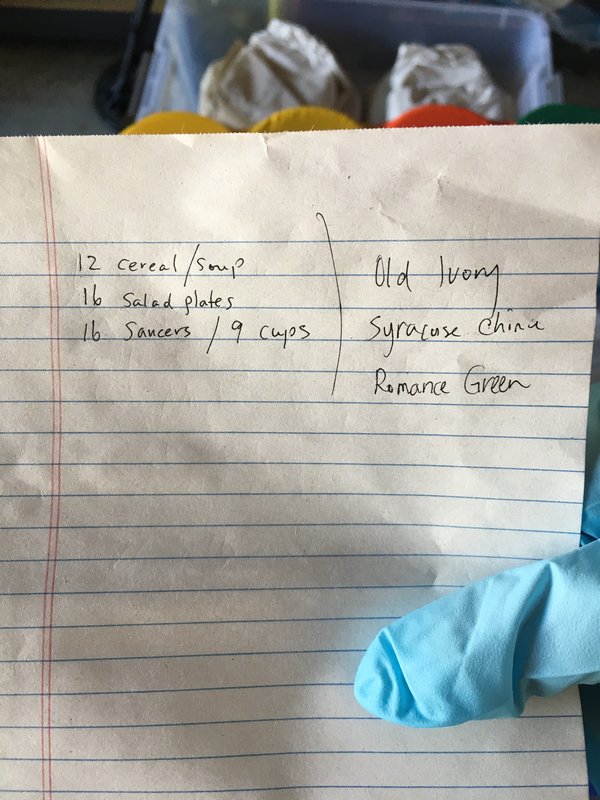 12 cereal/soup
16 Salad plates
16 Saucers / 9 cups
Old Ivory
Syracuse China
Romance Green